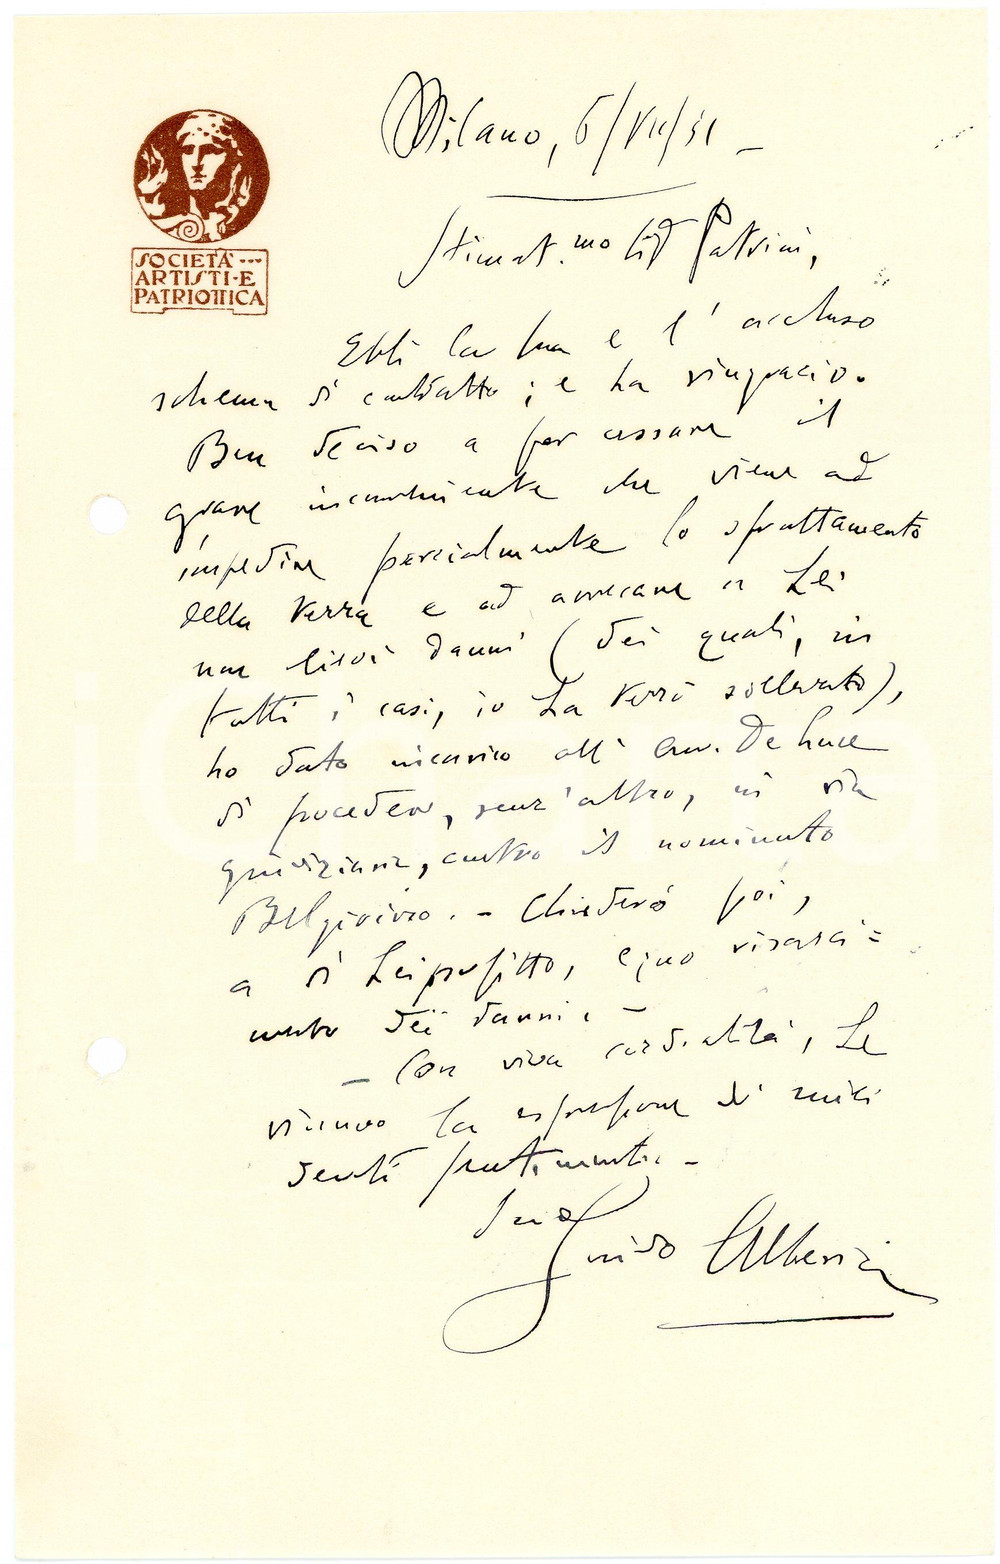 SOCIETÀ
ARTISTI·E
PATRIOTTICA
Milano, 6/VII/51 -
Stimat.mo Sig. Patrini,
Ebbi la sua e l'accluso
schema di contratto; e La ringrazio.
Ben deciso a far cessare il
grave inconveniente che viene ad
impedire parzialmente lo sfruttamento
della terra e ad arrecare a Lei
non lievi danni (dei quali, in
tutti i casi, io La terrò sollevato),
ho dato incarico all'Avv. De Luca
di procedere, senz'altro, in via
giudiziaria, contro il nominato
Belgioioso. - Chiederò poi,
a di Lei profitto, equo risarci=
mento dei danni. -
- Con viva cordialità, Le
rinnovo la espressione dei miei
sentimenti. -
Suo
Guido